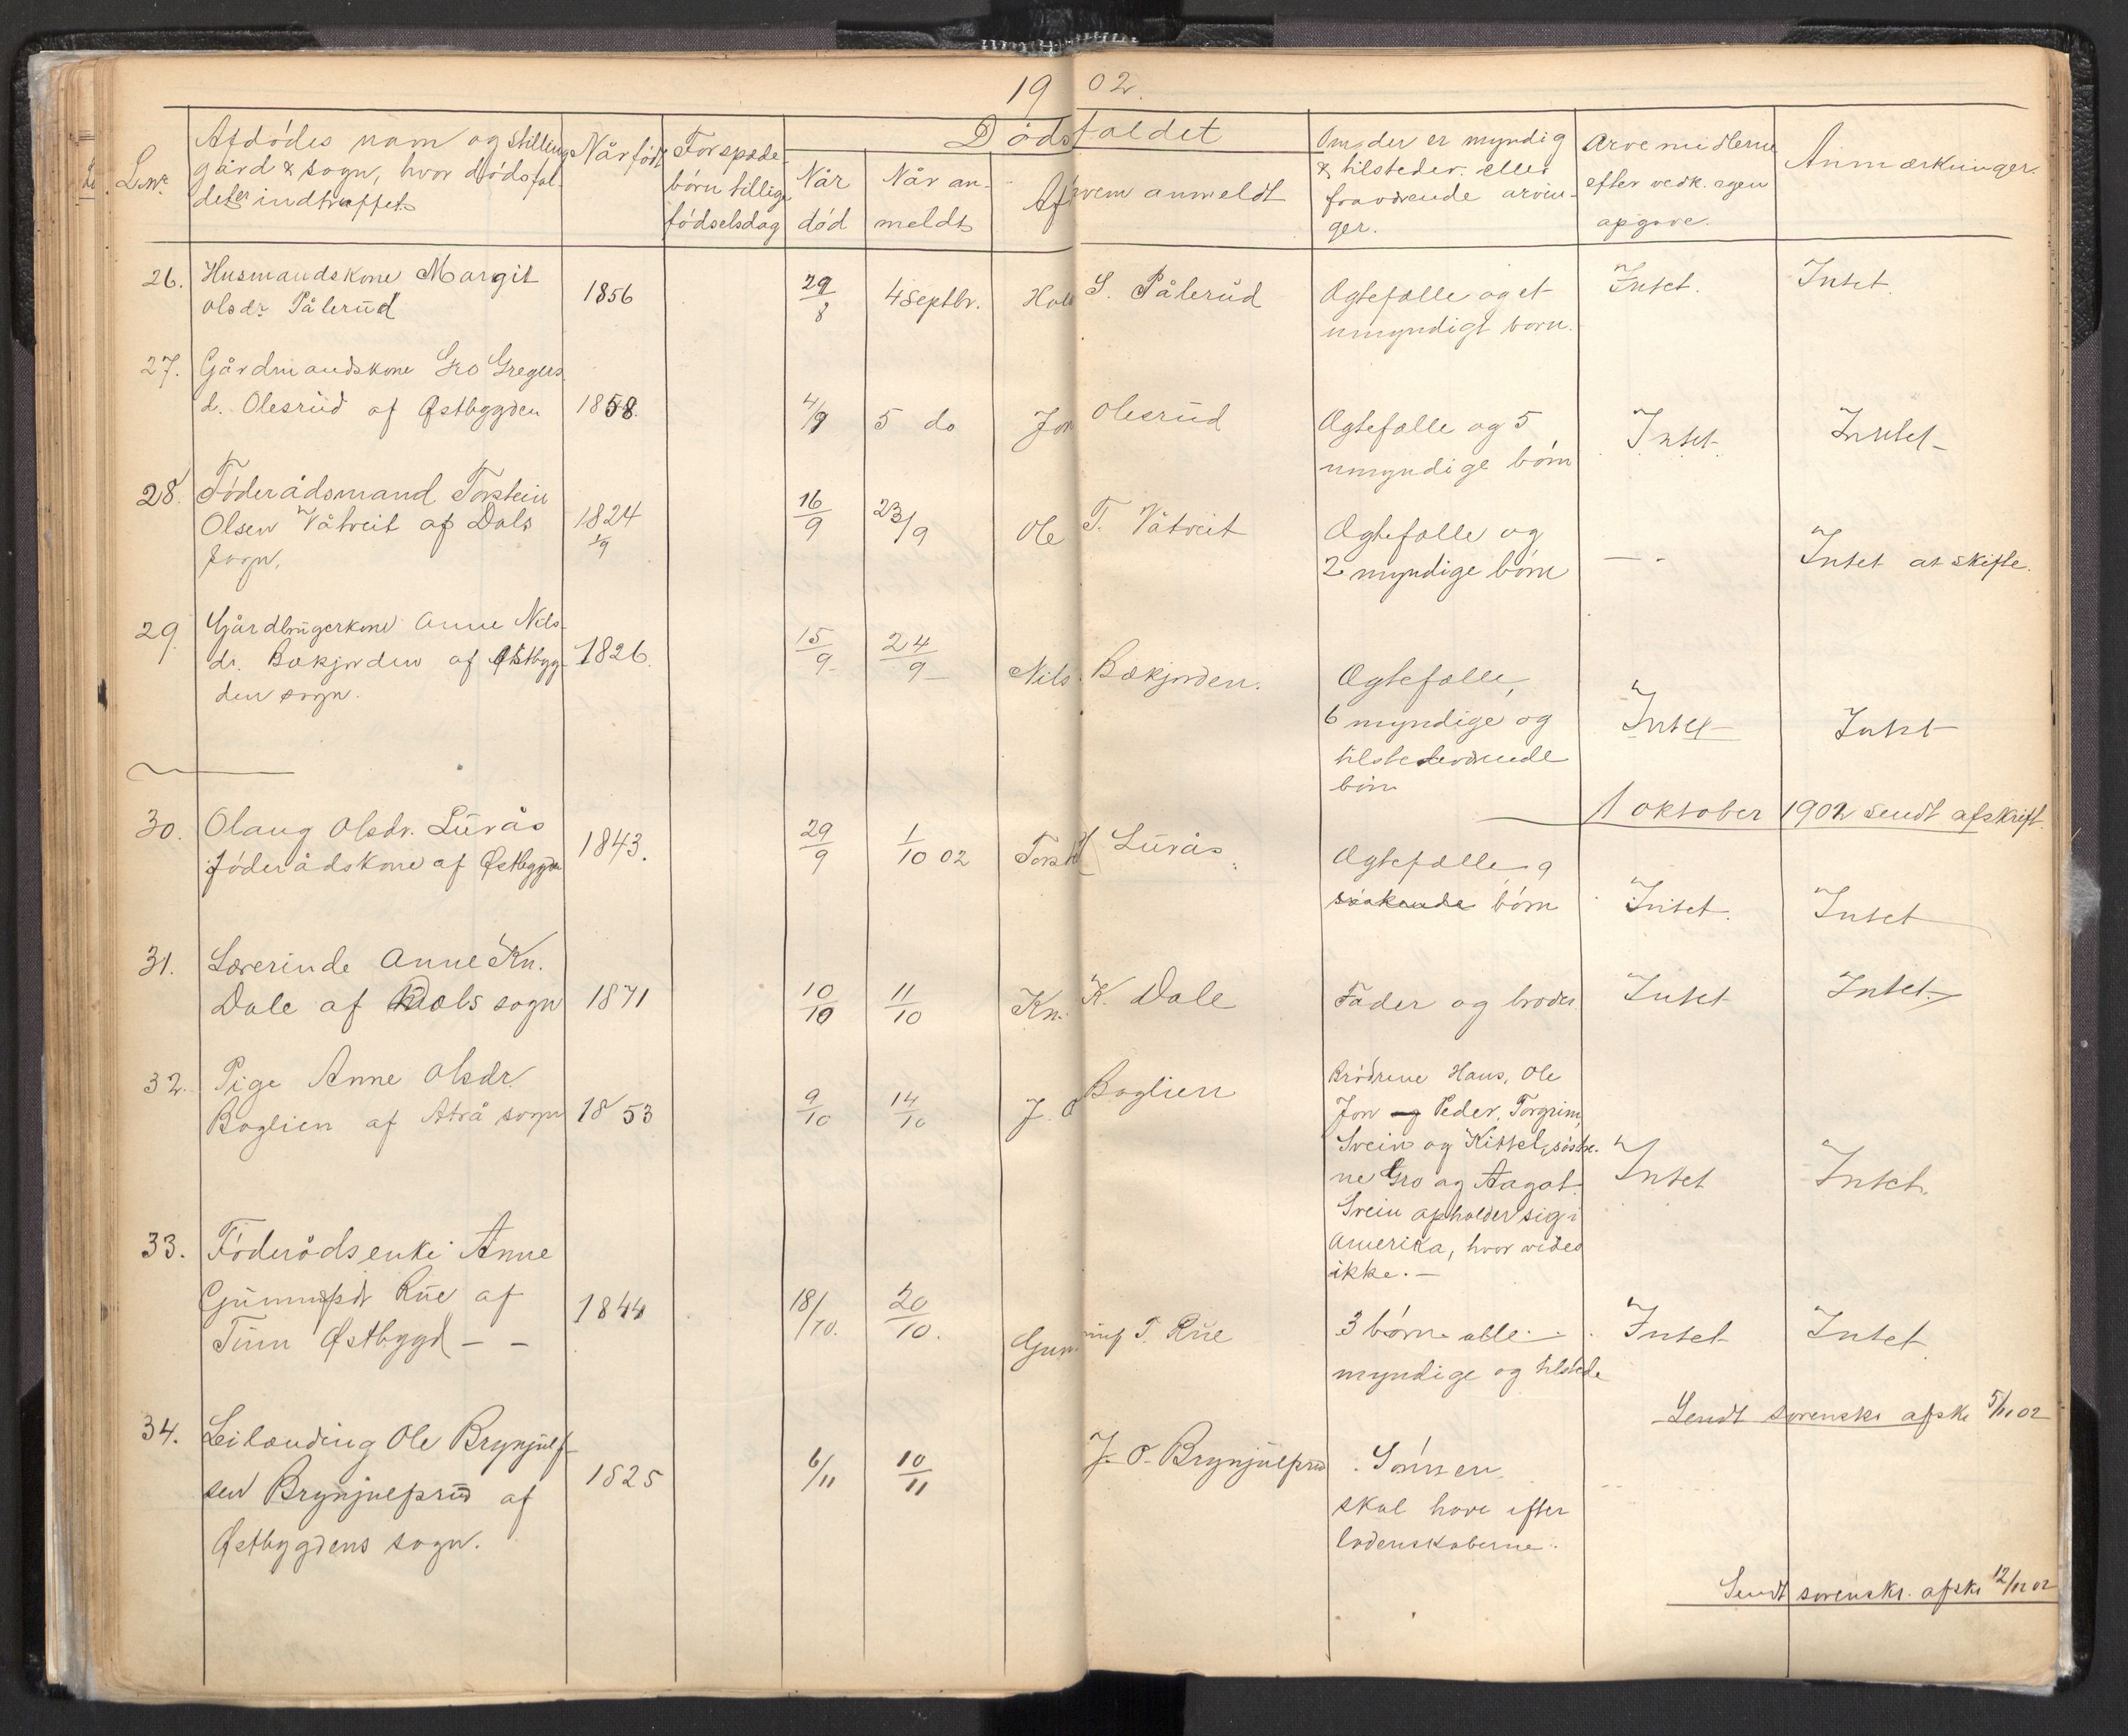 19 02.
Lnr.
Afdödes navn og stilling
gård & sogn, hvor dödsfal-
det er indtruffet
Når född
For späde-
börn tillige
födselsdag
Dödsfaldet
Når
död
Når an-
meldt
Af hvem anmeldt
Om der er myndig
& tilsteder. eller
fraværende arvin-
ger.
Arvemidlerne
efter vedk. egen
opgave.
Anmærkninger.
26. Husmandskone Margit
olsdr Pålerud 1856 29/8 4 Septbr. S. Pålerud Ægtefælle og et
umyndigt barn. Intet. Intet.
27. Gårdmandskone Gro Gregers
d. Olesrud af Østbygden 1858. 4/9 5 do Jon Olesrud Ægtefælle og 5
umyndige börn Intet. Intet
28. Föderådsmand Torstein
Olsen Våtveit af Dals
sogn. 1824 1/9 16/9 23/9 Ole T. Våtveit Ægtefælle og
2 myndige börn — - Intet at skifte.
29. Gårdbrugerkone Anne Nils-
dr. Bækjorden af Østbyg-
den sogn. 1826. 15/9 24/9 Nils Bækjorden. Ægtefælle,
6 myndige og
tilstedeværende
börn Intet Intet
1 oktober 1902 sendt afskrift.
30. Olaug Olsdr. Lurås
föderådskone af Østbygden 1843. 29/9 1/10 02 Lurås. Ægtefælle 9
börn Intet. Intet
31. Lærerinde Anne Kn.
Dale af Dals sogn 1871 10/10 11/10 Kn. K. Dale Fader og broder Intet Intet.
32. Pige Anne Olsdr.
Boglien af Atrå sogn 1853 9/10 14/10 J. O Boglien Brödrene Hans, Ole
Jon og Peder, Torgrim,
Svein og Kittel, söstre-
ne Gro og Aagot.
Svein opholder sig i
Amerika, hvor vides
ikke. — Intet Intet.
33. Föderådsenke Anne
Gunnufsdr Rue af
Tinn Østbygd — — 1844 18/10. 20/10. Gunnuf T. Rue 3 börn alle
myndige og tilstede Intet Intet
Sendt sorenskr afskr 5/11 02
34. Leilænding Ole Brynjulf-
sen Brynjulfsrud af
Østbygdens sogn. 1825 6/11 10/11 J. O. Brynjulfsrud Sönnen
skal have efter
ladenskaberne.
Sendt sorenskr. afskr 12/11 02